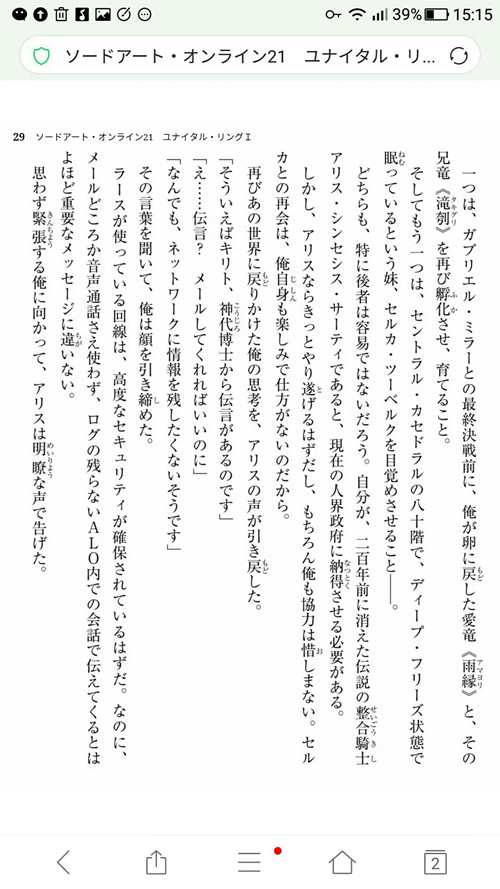 39% 15:15
ソードアート・オンライン21 ユナイタル・リ...
29 ソードアート・オンライン21 ユナイタル・リングⅠ
一つは、ガブリエル・ミラーとの最終決戦前に、俺が卵に戻した愛竜《雨縁》と、その
兄竜《滝刳》を再び孵化させ、育てること。
そしてもう一つは、セントラル・カセドラルの八十階で、ディープ・フリーズ状態で
眠っているという妹、セルカ・ツーベルクを目覚めさせること――。
どちらも、特に後者は容易ではないだろう。自分が、二百年前に消えた伝説の整合騎士
アリス・シンセシス・サーティであると、現在の人界政府に納得させる必要がある。
しかし、アリスならきっとやり遂げるはずだし、もちろん俺も協力は惜しまない。セル
カとの再会は、俺自身も楽しみで仕方がないのだから。
再びあの世界に戻りかけた俺の思考を、アリスの声が引き戻した。
「そういえばキリト、神代博士から伝言があるのです」
「え……伝言? メールしてくれればいいのに」
「なんでも、ネットワークに情報を残したくないそうです」
その言葉を聞いて、俺は顔を引き締めた。
ラースが使っている回線は、高度なセキュリティが確保されているはずだ。なのに、
メールどころか音声通話さえ使わず、ログの残らないALO内での会話で伝えてくるとは
よほど重要なメッセージに違いない。
思わず緊張する俺に向かって、アリスは明瞭な声で告げた。
2